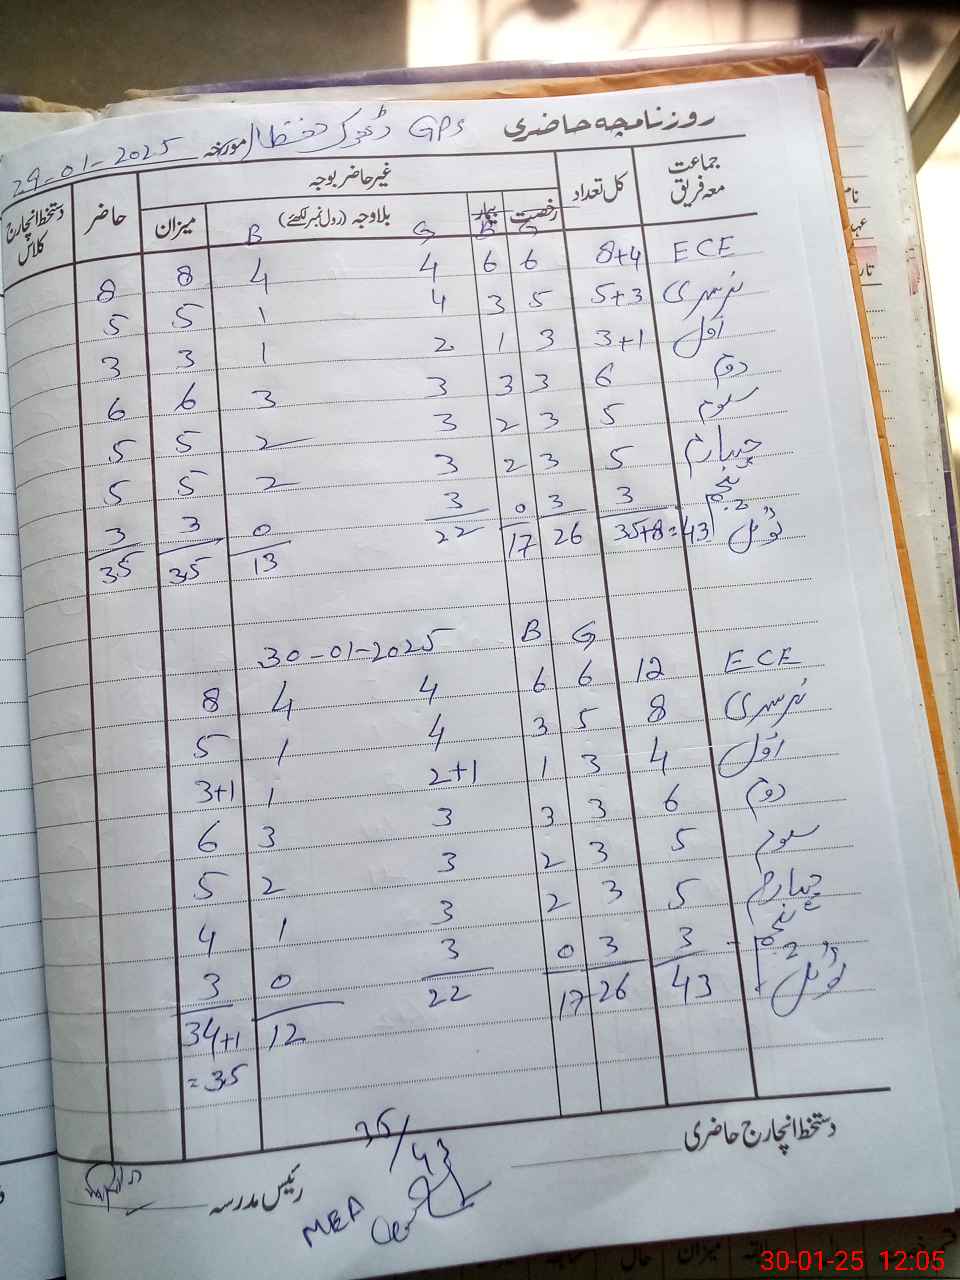 روزنامچہ حاضری GPS ڈھوک مورخہ 29-01-2025
جماعت معہ فریق کل تعداد غیر حاضر بوجہ حاضر دستخط انچارج کلاس
رخصت بیمار بلاوجہ (رول نمبر لکھئے) میزان
G B G B
ECE 8+4 6 6 4 4 8 8
نرسری 5+3 5 3 4 1 5 5
اول 3+1 3 1 2 1 3 3
دوم 6 3 3 3 3 6 6
سوم 5 3 2 3 2 5 5
چہارم 5 3 2 3 2 5 5
پنجم 3 3 0 3 0 3 3
ٹوٹل 35+8=43 26 17 22 13 35 35
G B 30-01-2025
ECE 12 6 6 4 4 8
نرسری 8 5 3 4 1 5
اول 4 3 1 2+1 1 3+1
دوم 6 3 3 3 3 6
سوم 5 3 2 3 2 5
چہارم 5 3 2 3 1 4
پنجم 3 3 0 3 0 3
ٹوٹل 43 26 17 22 12 34+1
=35
دستخط انچارج حاضری
رئیس مدرسہ
36/43
MEA
30-01-25 12:05